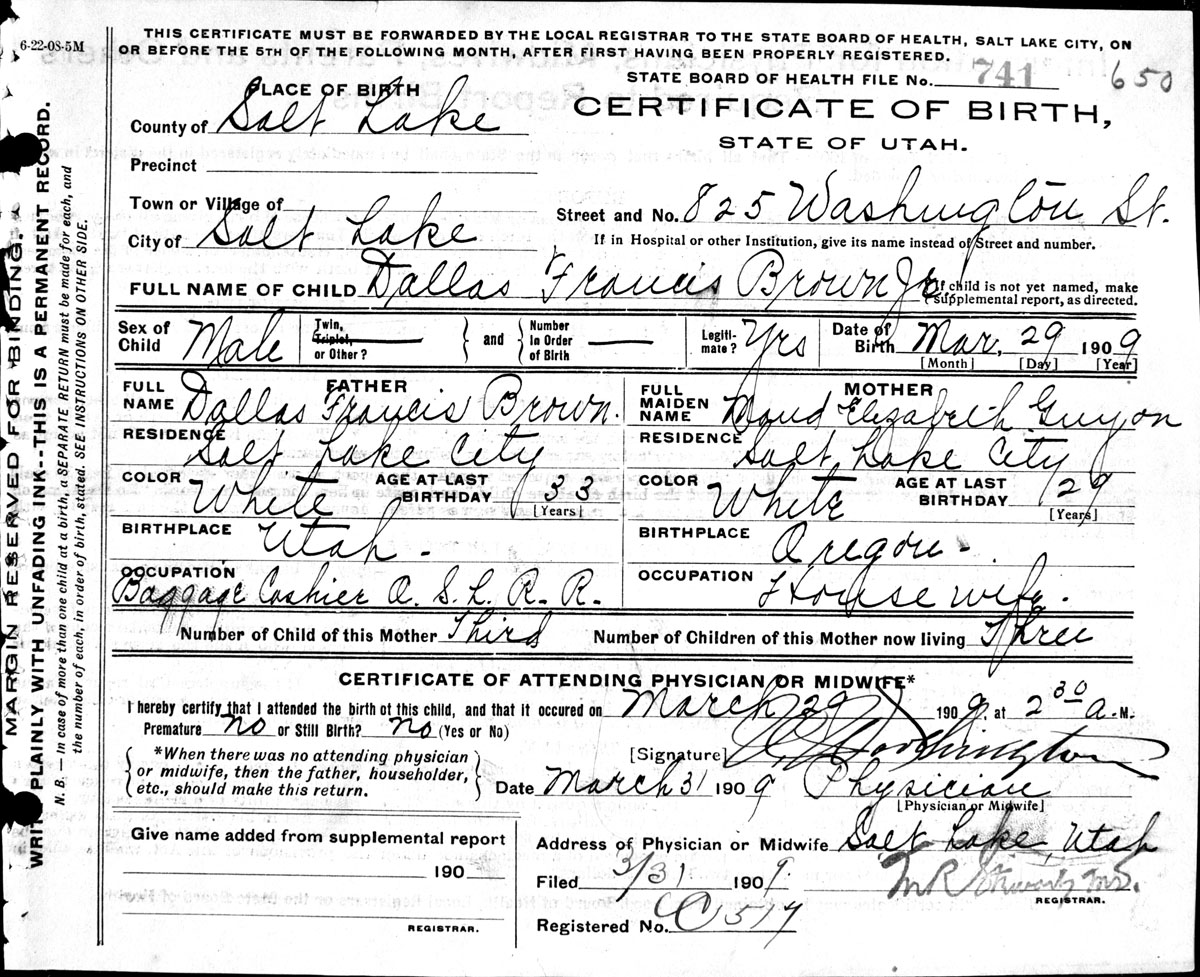 6-22-08-5M
THIS CERTIFICATE MUST BE FORWARDED BY THE LOCAL REGISTRAR TO THE STATE BOARD OF HEALTH, SALT LAKE CITY, ON
OR BEFORE THE 5TH OF THE FOLLOWING MONTH, AFTER FIRST HAVING BEEN PROPERLY REGISTERED.
STATE BOARD OF HEALTH FILE No. 741 650
PLACE OF BIRTH
CERTIFICATE OF BIRTH,
County of Salt Lake
STATE OF UTAH.
Precinct
Town or Village of
Street and No. 825 Washington St.
City of Salt Lake
If in Hospital or other Institution, give its name instead of Street and number.
FULL NAME OF CHILD Dallas Francis Brown Jr
If child is not yet named, make
supplemental report, as directed.
Sex of Child Male
Twin, Triplet, or Other?
and
Number In Order of Birth
Legiti-mate? Yrs
Date of Birth Mar. 29 1909
[Month] [Day] [Year]
FATHER
FULL NAME Dallas Francis Brown.
MOTHER
FULL MAIDEN NAME Maud Elizabeth Guyon
RESIDENCE Salt Lake City
RESIDENCE Salt Lake City
COLOR White AGE AT LAST BIRTHDAY 33 [Years]
COLOR White AGE AT LAST BIRTHDAY 29 [Years]
BIRTHPLACE Utah.
BIRTHPLACE Oregon.
OCCUPATION Baggage Cashier O. S. L. R. R.
OCCUPATION House wife.
Number of Child of this Mother Third
Number of Children of this Mother now living Three
CERTIFICATE OF ATTENDING PHYSICIAN OR MIDWIFE*
I hereby certify that I attended the birth of this child, and that it occured on March 29 1909, at 2 30 a. M.
Premature no or Still Birth? no (Yes or No)
*When there was no attending physician
or midwife, then the father, householder,
etc., should make this return.
[Signature] Worthington
Date March 31 1909 Physician
[Physician or Midwife]
Give name added from supplemental report
190
REGISTRAR.
Address of Physician or Midwife Salt Lake, Utah
Filed 3/31 1909
REGISTRAR.
Registered No. C 517
MARGIN RESERVED FOR BINDING.
WRITE PLAINLY WITH UNFADING INK--THIS IS A PERMANENT RECORD.
N. B. — In case of more than one child at a birth, a SEPARATE RETURN must be made for each, and
the number of each, in order of birth, stated. SEE INSTRUCTIONS ON OTHER SIDE.